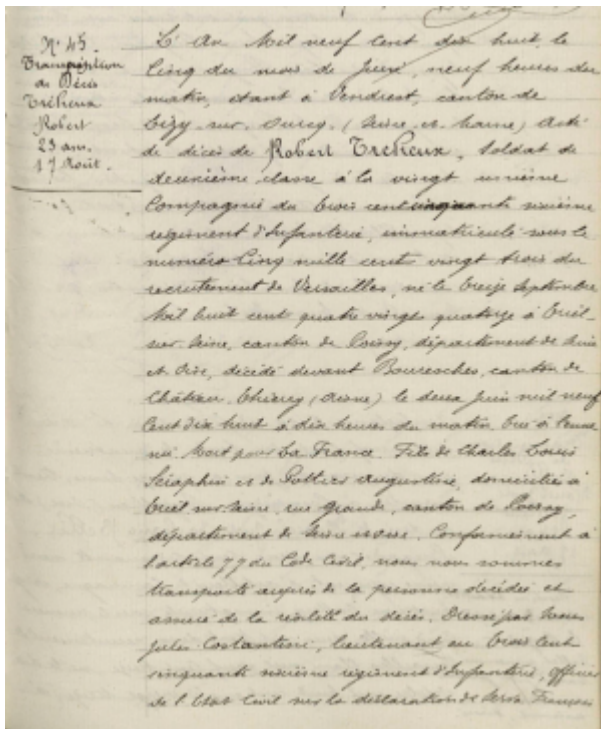 N° 45.
Transcription
de Décès
Tréheux
Robert
23 ans.
17 Août.
L'An Mil neuf Cent dix huit, le
Cinq du mois de Juin, neuf heures du
matin, étant à Vendrest, canton de
Lizy-sur-Ourcq. (Seine-et-Marne) Acte
de décès de Robert Tréheux, Soldat de
deuxième classe à la vingt unième
Compagnie du trois cent cinquante sixième
régiment d'Infanterie, immatriculé sous le
numéro Cinq mille cent vingt trois du
recrutement de Versailles, né le treize Septembre
Mil huit cent quatre vingt quatorze à Triel-
sur-Seine, canton de Poissy, département de Seine
et Oise, décédé devant Bouresches, canton de
Château-Thierry (Aisne) le deux Juin mil neuf
Cent dix huit à dix heures du matin. Tué à l'enne
mi. Mort pour La France. Fils de Charles Louis
Séraphin et de Pottier Augustine, domiciliés à
Triel-sur-Seine, rue Grande, canton de Poissy,
département de Seine et Oise. Conformément à
l'article 77 du Code Civil, nous nous sommes
transporté auprès de la personne décédée et
assuré de la réalité du décès. Dressé par Nous
Jules Costantini, lieutenant au trois Cent
cinquante sixième régiment d'Infanterie, officier
de l'Etat Civil sur la déclaration de François